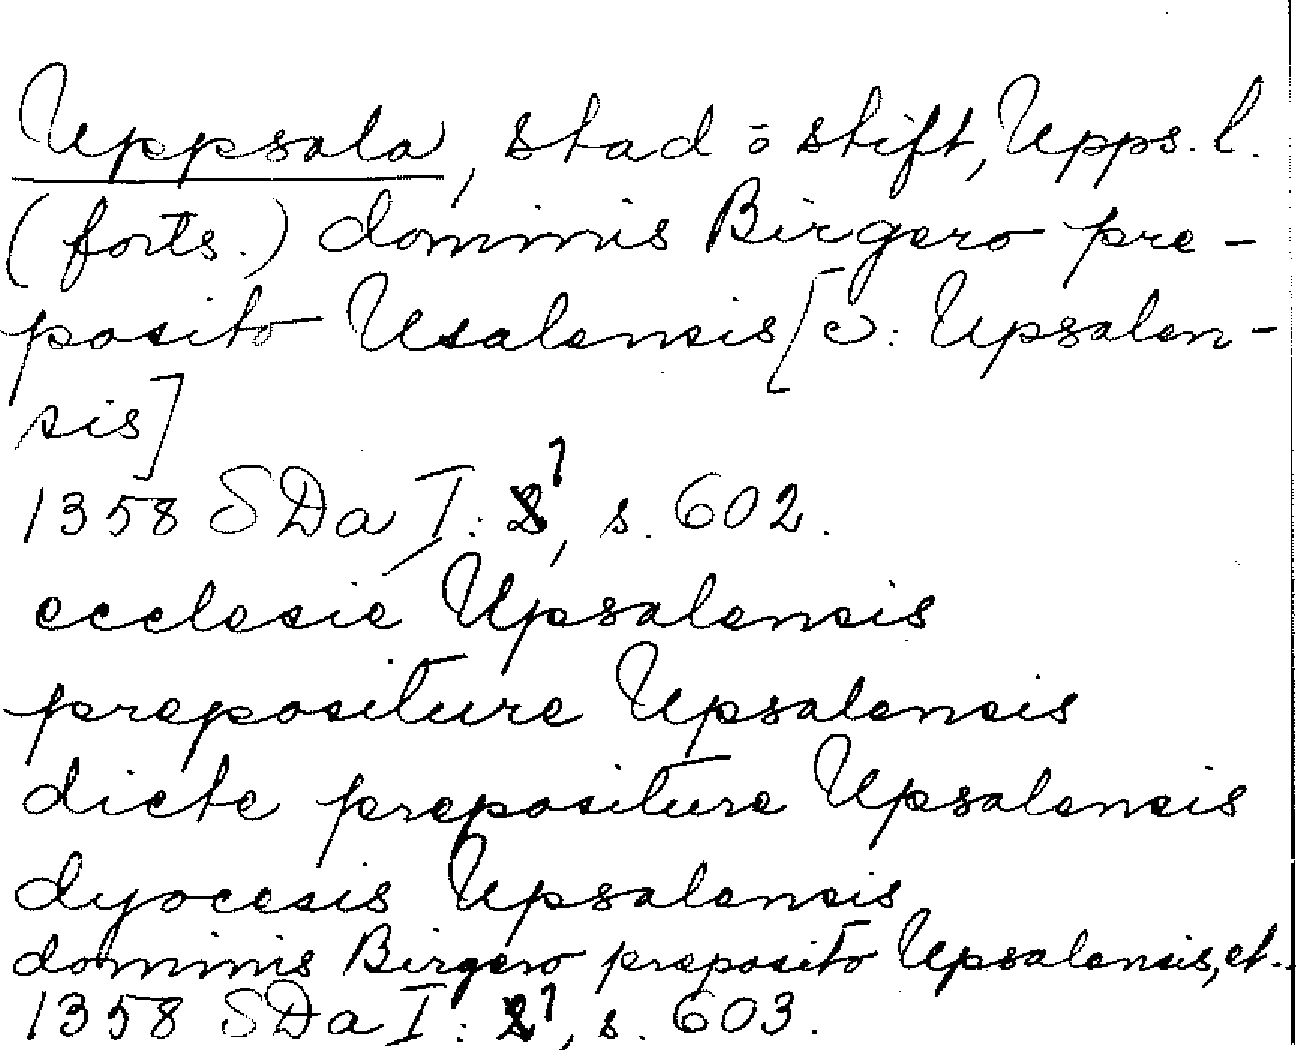 Uppsala, stad o stift, Upps. l.
(forts.) dominis Birgero pre-
posito Usalensis [ɔ: Upsalen-
sis]
1358 SDa I: 1, s. 602.
ecclesie Upsalensis
prepositure Upsalensis
dicte prepositure Upsalensis
dyocesis Upsalensis
dominis Birgero preposito Upsalensis, et..
1358 SDa I: 1, s. 603.